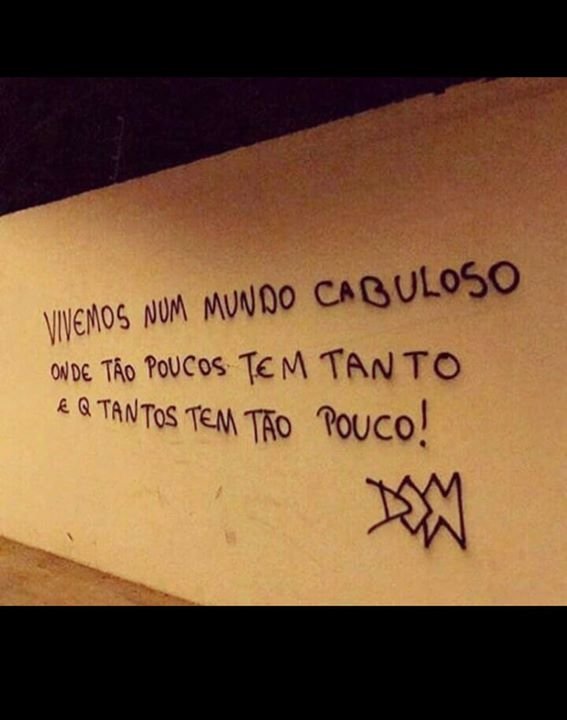 VIVEMOS NUM MUNDO CABULOSO
ONDE TÃO POUCOS TEM TANTO
E Q TANTOS TEM TÃO POUCO!